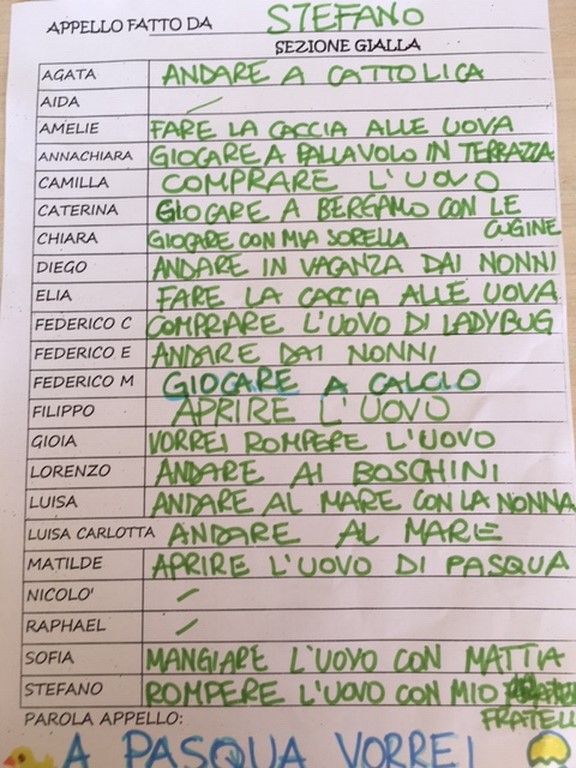 APPELLO FATTO DA STEFANO
SEZIONE GIALLA
AGATA ANDARE A CATTOLICA
AIDA /
AMELIE FARE LA CACCIA ALLE UOVA
ANNACHIARA GIOCARE A PALLAVOLO IN TERRAZZA
CAMILLA COMPRARE L'UOVO
CATERINA GIOCARE A BERGAMO CON LE
CUGINE
CHIARA GIOCARE CON MIA SORELLA
DIEGO ANDARE IN VACANZA DAI NONNI
ELIA FARE LA CACCIA ALLE UOVA
FEDERICO C COMPRARE L'UOVO DI LADYBUG
FEDERICO E ANDARE DAI NONNI
FEDERICO M GIOCARE A CALCIO
FILIPPO APRIRE L'UOVO
GIOIA VORREI ROMPERE L'UOVO
LORENZO ANDARE AI BOSCHINI
LUISA ANDARE AL MARE CON LA NONNA
LUISA CARLOTTA ANDARE AL MARE
MATILDE APRIRE L'UOVO DI PASQUA
NICOLO' /
RAPHAEL /
SOFIA MANGIARE L'UOVO CON MATTIA
STEFANO ROMPERE L'UOVO CON MIO
FRATELL
PAROLA APPELLO:
A PASQUA VORREI